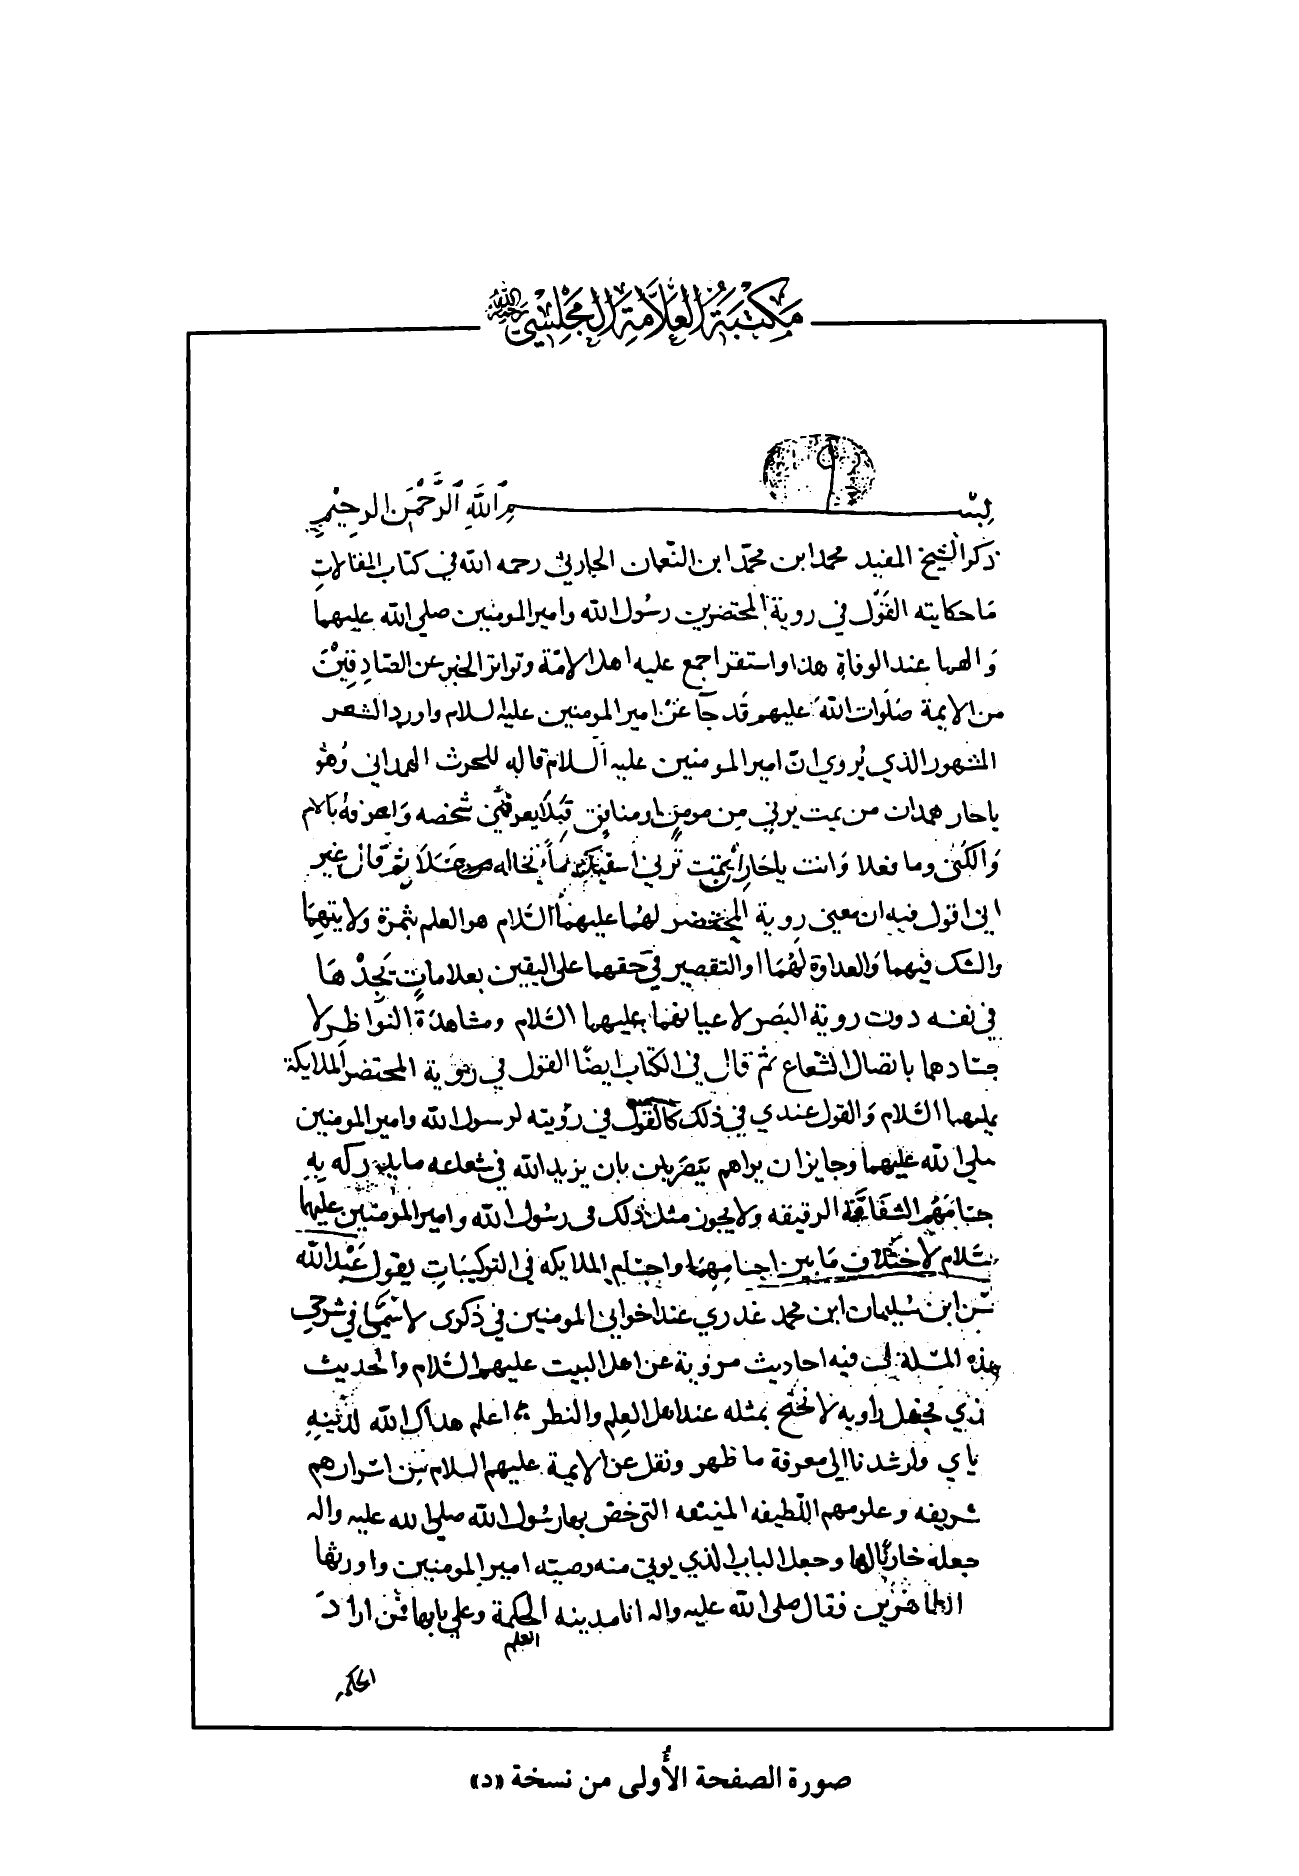 مكتبة العلامة المجلسي رحمه الله
بسم الله الرحمن الرحيم
ذكر الشيخ المفيد محمد ابن محمد ابن النعمان الحارثي رحمه الله في كتاب المقالات
ما حكايته القول في روية المحتضرين رسول الله وامير المومنين صلى الله عليهما
والهما عند الوفاة هذا واستقر اجمع عليه اهل الامة وتواتر الخبر عن الصادقين
من الايمة صلوات الله عليهم قد جا عن امير المومنين عليه السلام واورد الشعر
المشهور الذي يروي ان امير المومنين عليه السلام قاله للحرث الهمداني وهو
ياحار همدان من يمت يرني من مومن او منافق قبلا يعرفني شخصه واعرفه بالاسم
والكنى وما فعلا وانت ياحار ان تمت ترني اسقيك ماء تخاله عسلا ثم قال غير
اني اقول فيه ان معنى روية المحتضر لهما عليهما السلام هو العلم بثمرة ولايتهما
والشك فيهما والعداوة لهما او التقصير في حقهما على اليقين بعلامات تجدها
في نفسه دون روية البصر لاعيانهما عليهما السلام ومشاهدة النواظر لا
جسادهما باتصال الشعاع ثم قال في الكتاب ايضا القول في روية المحتضر الملايكة
عليهما السلام والقول عندي في ذلك كالقول في رؤيته لرسول الله وامير المومنين
صلى الله عليهما وجايز ان يراهم ببصره بان يزيد الله في شعاعه ما يدركه به
جسامهم الشفافة الرقيقه ولا يجوز مثل ذلك في رسول الله وامير المومنين عليهما
السلام لاختلاف ما بين اجسامهما واجسام الملايكه في التركيبات يقول عبد الله
حسن ابن سليمان ابن محمد عذري عند اخواني المومنين في ذكرى لا سيما في شرحي
هذه المسلة لي فيه احاديث مروية عن اهل البيت عليهم السلام والحديث
الذي يجهل راويه لا تحتج بمثله عند اهل العلم والنظر اعلم هداك الله لدينه
ياي وارشدنا الى معرفة ما ظهر ونقل عن الايمة عليهم السلام من اسرارهم
شريفه وعلومهم اللطيفه المنيعه التي خص بها رسول الله صلى الله عليه واله
جعله خازنا لها وجعل الباب الذي يوتى منه وصيته امير المومنين واورثها
الطاهرين فقال صلى الله عليه واله انا مدينه الحكمة وعلي بابها فمن اراد
العلم
الحكمه
صورة الصفحة الأولى من نسخة «د»